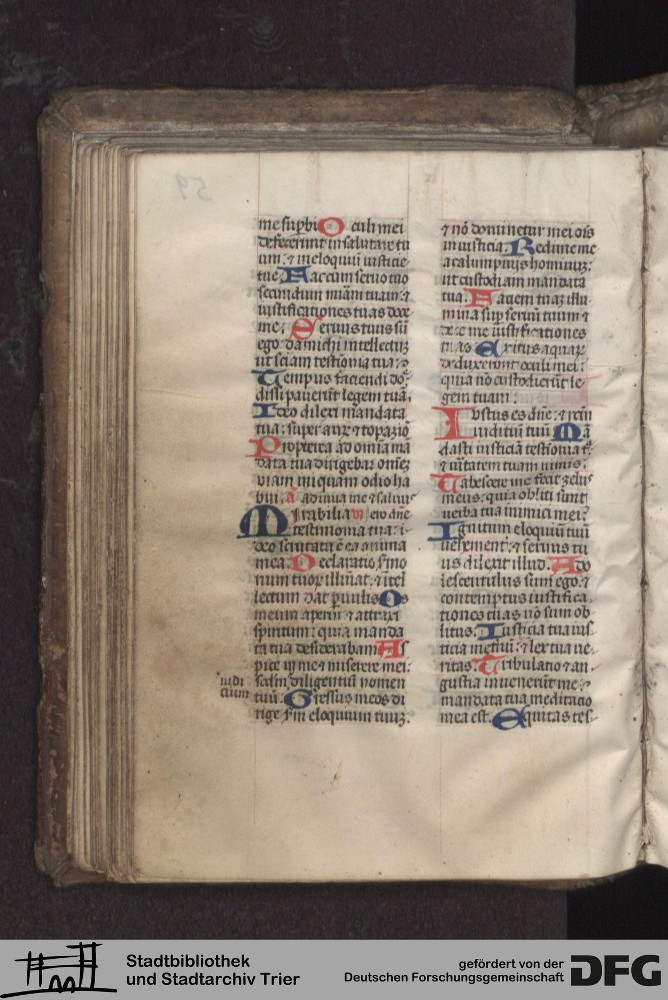 me supbi Oculi mei
defecerunt in salutare tu
um: & in eloquiū iusticie
tue. Fac cum seruo tuo
secundum miām tuam: &
iustificationes tuas doce
me: Seruus tuus sū
ego: da michi intellectū
ut sciam testīonia tua:
Tempus faciendi dōe
dissipauerūt legem tuā,
Ideo dilexi mandata
tua: super aurū & topaziō
Propterea ad omnia mā
data tua dirigebar: om̄ez
viam iniquam odio ha
bui, a. adiuua me & saluus
Mirabilia ero dn̄e
testimonia tua: i-
deo scrutata ē ea anima
mea. Declaratio s̄mo
num tuor illuīat: & ītel
lectum dat p̱uulis Os
meum aperui & attraxi
spiritum: quia manda
ta tua desiderabam As
pice in me & miserere mei:
iudi
cium
scd̄m diligentiū nomen
tuū. Gressus meos di
rige s̄m eloquium tuuz.
& nō dominetur mei oīs
iniusticia. Redime me
a calumpniis hominuz:
ut custodiam mandata
tua. Faciem tuaz illu-
mina sup seruū tuum &
doce me iustificationes
tuas Exitus aquaꝝ
deduxerunt oculi mei:
quia nō custodierūt le-
gem tuam:
Iustus es dn̄e: & rctm̄
iudiciū tuū Mā
dasti iusticiā testīonia t̄
& ūitatem tuam nimis:
Tabescere me fecit zelus
meus: quia obliti sunt
uerba tua inimici mei:
Ignitum eloquiū tuū
uehement: & seruus tu
us dilexit illud. Ado
lescentulus sum ego: &
contemptus iustifica,
tiones tuas nō sum ob-
litus: Iusticia tua ius,
ticia ī eternū: & lex tua ue-
ritas. Tribulatio & an-
gustia inuenerūt me:
mandata tua meditacio
mea est. Equitas tes-
59
Stadtbibliothek
und Stadtarchiv Trier
gefördert von der
Deutschen Forschungsgemeinschaft
DFG